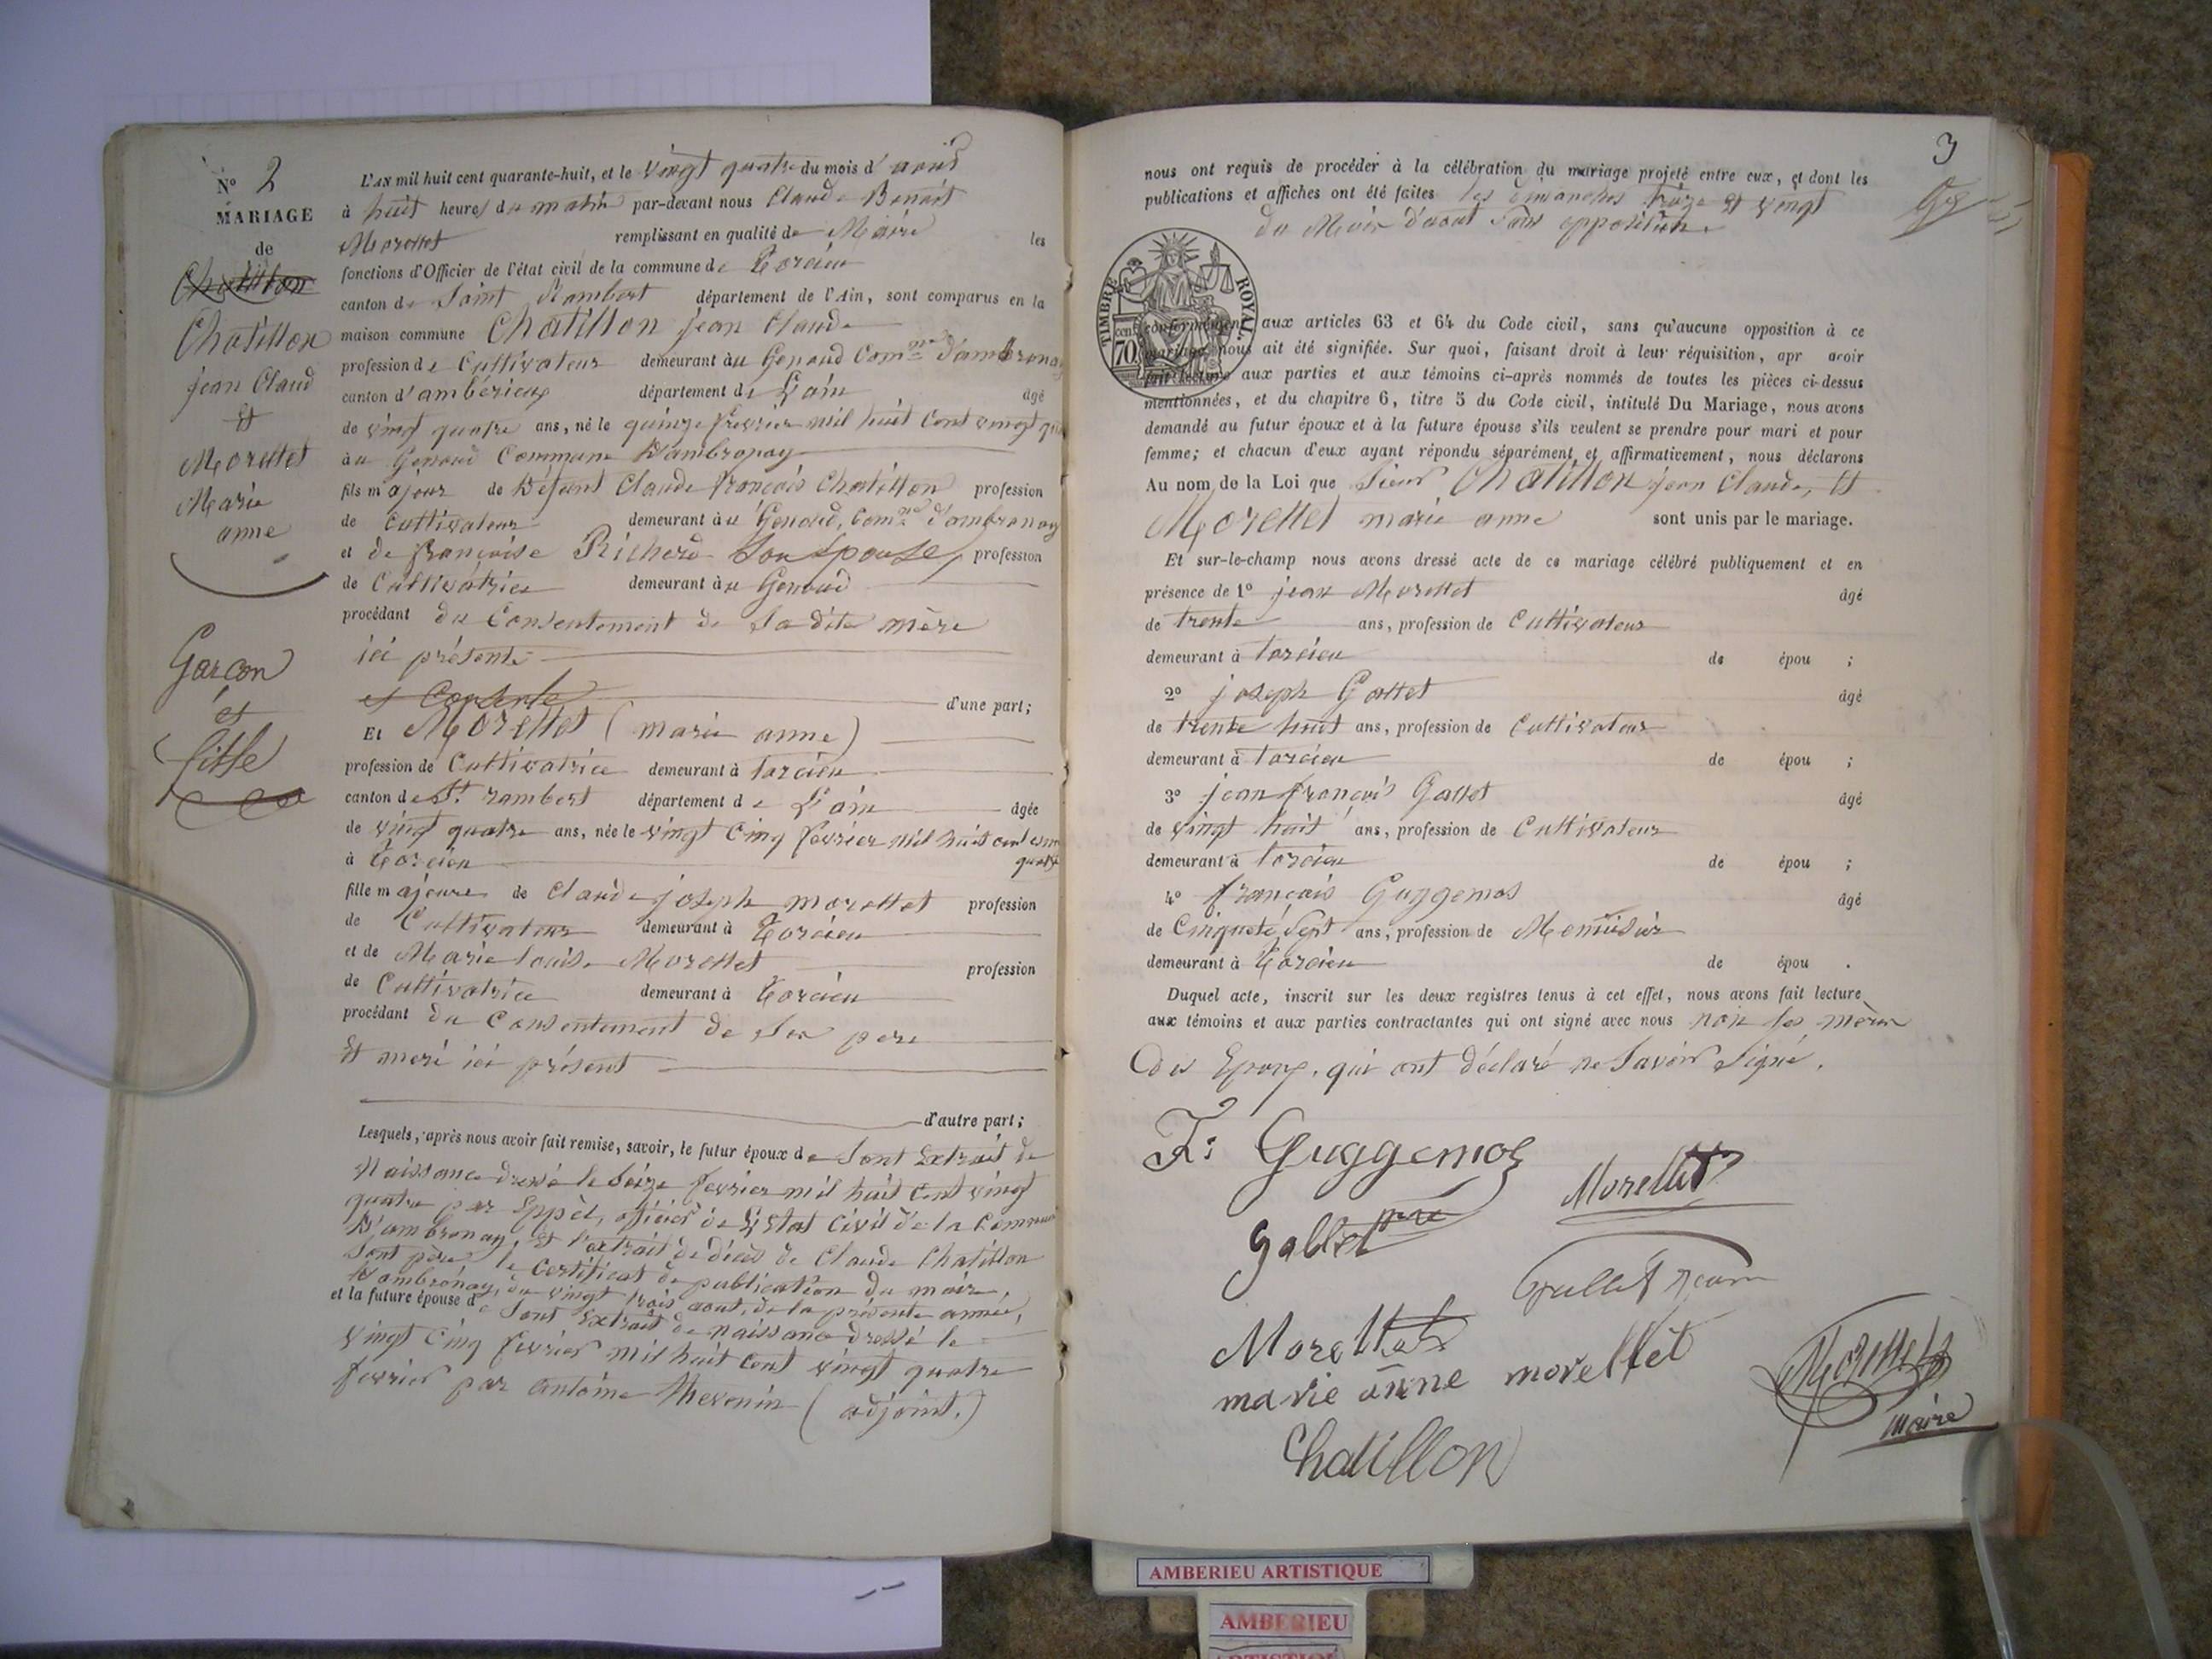 N° 2
MARIAGE
de
Chatillon
Chatillon
jean Claud
Et
Morettet
Marie
anne
Garçon
et
fille
L'AN mil huit cent quarante-huit, et le vingt quatre du mois d'
à huit heures du matin par-devant nous Claude Benoit
Morettet remplissant en qualité de Maire les
fonctions d'Officier de l'état civil de la commune de Torcieu
canton de Saint Rambert département de l'Ain, sont comparus en la
maison commune Chatillon jean Claude
profession de Cultivateur demeurant au Genoud Comne d'ambronay
canton d'ambérieux département de L'ain âgé
de vingt quatre ans, né le quinze fevrier mil huit Cent vingt
au Genoud Commune D'ambronay
fils majeur de Défunt Claude françois Chatillon profession
de Cultivateur demeurant au Genoud, Comne d'ambronay
et de françoise Richerd Son Epouse, profession
de Cultivatrice demeurant au Genoud
procédant du Consentement de Sa dite mère
ici présente
et Consente d'une part;
Et Morettet (marie anne)
profession de Cultivatrice demeurant à torcieu
canton de St. rambert département de L'ain âgée
de vingt quatre ans, née le vingt Cinq février mil huit cent
à Torcieu quatre
fille majeure de Claude joseph morettet profession
de Cultivateur demeurant à Torcieu
et de Marie louise Morettet profession
de Cultivatrice demeurant à Torcieu
procédant du Consentement de Ses pere
Et mere ici présent
d'autre part;
Lesquels, après nous avoir fait remise, savoir, le futur époux de Sont Extrait de
Naissance dressé le Seize fevrier mil huit Cent vingt
quatre par Eppèt, officier de L'Etat Civil de la Commune
D'ambronay, Et l'extrait de dicès de Claude Chatillon
Sont père, le Certificat de publication du maire,
D'ambronay, du vingt trois aout, de la présente année,
et la future épouse de Sont Extrait de naissance dressé le
vingt Cinq fevrier mil huit Cent vingt quatre
fevrier par antoine thevenin (adjoint.)
3
nous ont requis de procéder à la célébration du mariage projeté entre eux, et dont les
publications et affiches ont été faites les dimanches treize et vingt
du Mois d'aout Sans opposition
TIMBRE ROYAL
70
conformément aux articles 63 et 64 du Code civil, sans qu'aucune opposition à ce
mariage nous ait été signifiée. Sur quoi, faisant droit à leur réquisition, apr avoir
fait lecture aux parties et aux témoins ci-après nommés de toutes les pièces ci-dessus
mentionnées, et du chapitre 6, titre 5 du Code civil, intitulé Du Mariage, nous avons
demandé au futur époux et à la future épouse s'ils veulent se prendre pour mari et pour
femme; et chacun d'eux ayant répondu séparément et affirmativement, nous déclarons
Au nom de la Loi que Sieur Chatillon jean Claude, Et
Morettet marie anne sont unis par le mariage.
Et sur-le-champ nous avons dressé acte de ce mariage célébré publiquement et en
présence de 1° jean Morettet âgé
de trente ans, profession de Cultivateur
demeurant à torcieu de épou ;
2° joseph Gottet âgé
de trente huit ans, profession de Cultivateur
demeurant à torcieu de épou ;
3° jean françois Gallet âgé
de vingt huit ans, profession de Cultivateur
demeurant à torcieu de épou ;
4° françois Guggemos âgé
de Cinquate Sept ans, profession de Menuisier
demeurant à Torcieu de épou .
Duquel acte, inscrit sur les deux registres tenus à cet effet, nous avons fait lecture
aux témoins et aux parties contractantes qui ont signé avec nous non les mères
des Epoux, qui ont déclaré ne Savoir Signé.
F: Guggemos
Morettet
Gallet
Gallet Jean
Morettet
marie anne morettet
Morettet
maire
Chatillon
AMBERIEU ARTISTIQUE
AMBERIEU
ARTISTIQUE